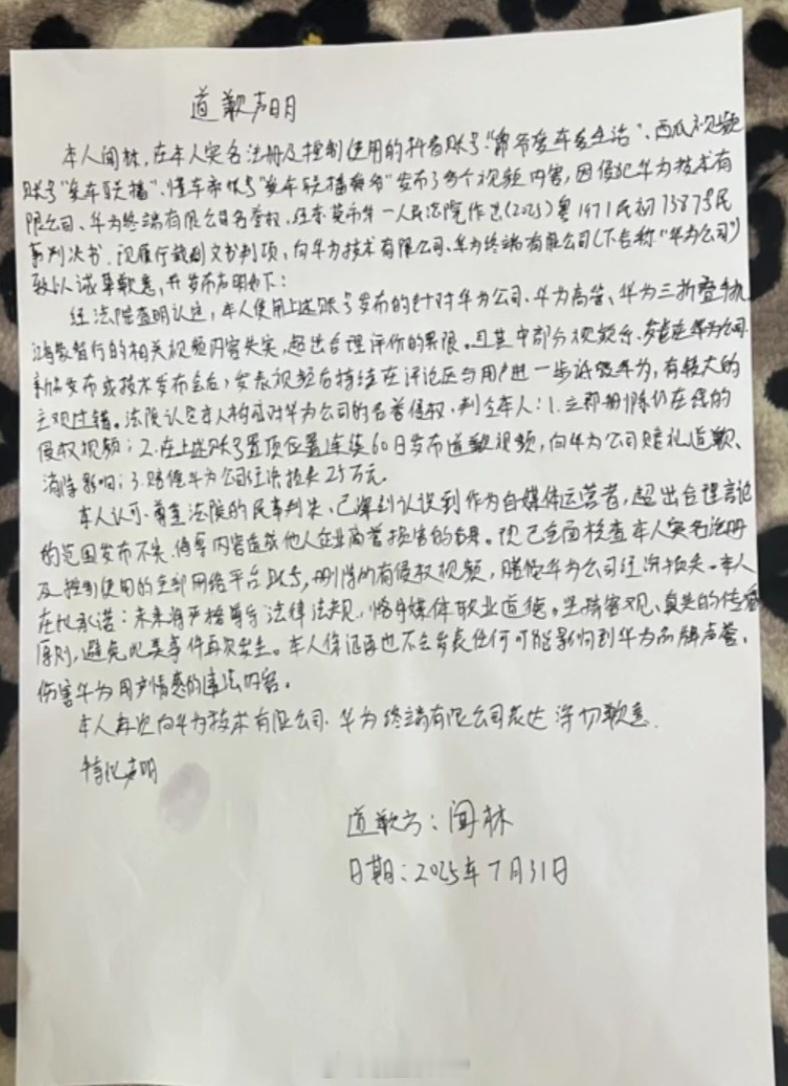 道歉声明
本人闻林,在本人实名注册及控制使用的抖音账号“爵爷爱车爱生活”、西瓜视频
账号“爱车联播”、懂车帝帐号“爱车联播爵爷”发布了多个视频内容,因侵犯华为技术有
限公司、华为终端有限公司名誉权,经东莞市第一人民法院作出(2025)粤1971民初7387号民
事判决书,现履行裁判文书判项,向华为技术有限公司、华为终端有限公司(下合称“华为公司”)
致以诚挚歉意,并发布声明如下:
经法院查明认定,本人使用上述账号发布的针对华为公司、华为高管、华为三折叠手机、
鸿蒙智行的相关视频内容失实,超出合理评价的界限。且其中部分视频系华为公司
新品发布或技术发布会后,发表视频后持续在评论区与用户进一步诋毁华为,有较大的
主观过错。法院认定本人构成对华为公司的名誉侵权,判令本人:1.立即删除仍在线的
侵权视频;2.在上述账号置顶位置连续60日发布道歉视频,向华为公司赔礼道歉、
消除影响;3.赔偿华为公司经济损失25万元。
本人认可、尊重法院的民事判决,已深刻认识到作为自媒体运营者,超出合理言论
的范围发布不实、侮辱内容造成他人企业商誉损害的后果。现已全面核查本人实名注册
及控制使用的全部网络平台账号,删除所有侵权视频,赔偿华为公司经济损失。本人
在此承诺:未来将严格遵守法律法规,恪守媒体职业道德。坚持客观、真实的传播
原则,避免此类事件再次发生。本人保证再也不会发表任何可能影响到华为品牌声誉、
伤害华为用户情感的违法内容。
本人再次向华为技术有限公司、华为终端有限公司表达深切歉意.
特此声明
道歉方:闻林
日期:2025年7月31日